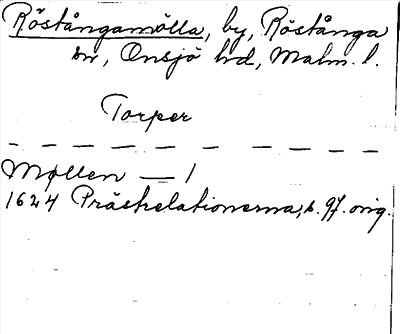 Röstångamölla, by, Röstånga
sn, Onsjö hd, Malm. l.
Torper
Møllen — 1
1624 Prästrelationerna, s. 97. orig.